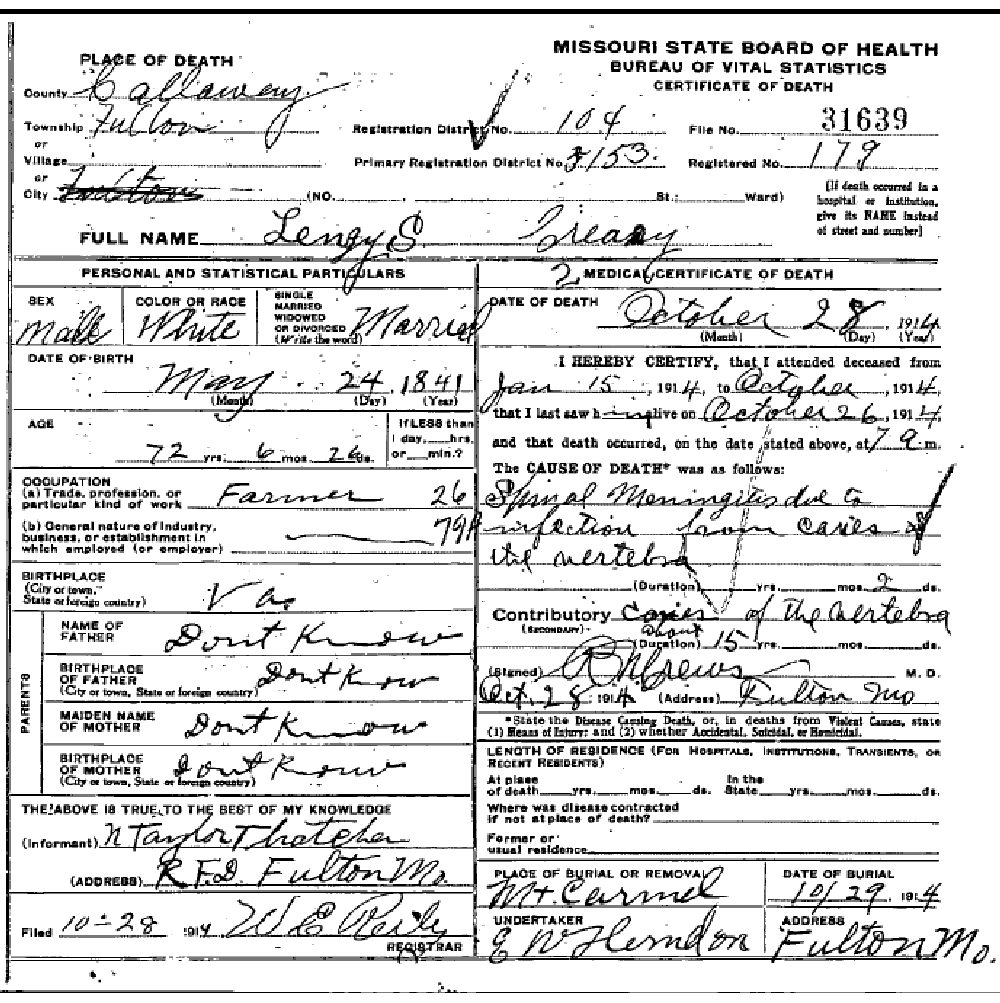 MISSOURI STATE BOARD OF HEALTH
BUREAU OF VITAL STATISTICS
CERTIFICATE OF DEATH
PLACE OF DEATH
County Callaway
Township Fulton
or
Village
or
City Fulton (NO. St.; Ward)
Registration District No. 104 File No. 31639
Primary Registration District No. 3153. Registered No. 179
[If death occurred in a
hospital or institution,
give its NAME instead
of street and number]
FULL NAME S. Creasy
PERSONAL AND STATISTICAL PARTICULARS
SEX
Male
COLOR OR RACE
White
SINGLE
MARRIED
WIDOWED
OR DIVORCED
(Write the word)
Married
DATE OF BIRTH
May 24, 1841
(Month) (Day) (Year)
AGE
72 yrs. 6 mos. 26 ds.
If LESS than
1 day, hrs.
or min.?
OCCUPATION
(a) Trade, profession, or
particular kind of work Farmer 26
(b) General nature of industry,
business, or establishment in
which employed (or employer)
79A
BIRTHPLACE
(City or town,
State or foreign country) Va.
PARENTS
NAME OF
FATHER Dont Know
BIRTHPLACE
OF FATHER
(City or town, State or foreign country) Dont Know
MAIDEN NAME
OF MOTHER Dont Know
BIRTHPLACE
OF MOTHER
(City or town, State or foreign country) Dont Know
THE ABOVE IS TRUE TO THE BEST OF MY KNOWLEDGE
(Informant) N Taylor Thatcher
(ADDRESS) R.F.D. Fulton Mo.
Filed 10-28 1914 W E Reily
REGISTRAR
2 MEDICAL CERTIFICATE OF DEATH
DATE OF DEATH
October 28, 1914
(Month) (Day) (Year)
I HEREBY CERTIFY, that I attended deceased from
Jan 15, 1914, to October, 1914
that I last saw him alive on October 26, 1914
and that death occurred, on the date stated above, at 7 a.m.
The CAUSE OF DEATH* was as follows:
Spinal Meningitis due to
infection from caries of
the vertebra
(Duration) yrs. mos. 2 ds.
Contributory caries of the vertebra
(SECONDARY)
about
(Duration) 15 yrs. mos. ds.
(Signed) Crews M.D.
Oct. 28, 1914 (Address) Fulton Mo
*State the Disease Causing Death, or, in deaths from Violent Causes, state
(1) Means of Injury; and (2) whether Accidental, Suicidal, or Homicidal.
LENGTH OF RESIDENCE (FOR HOSPITALS, INSTITUTIONS, TRANSIENTS, OR
RECENT RESIDENTS)
At place
of death yrs. mos. ds.
In the
State yrs. mos. ds.
Where was disease contracted
if not at place of death?
Former or
usual residence
PLACE OF BURIAL OR REMOVAL
Mt. Carmel
DATE OF BURIAL
10/29 1914
UNDERTAKER
E W Herndon
ADDRESS
Fulton Mo.